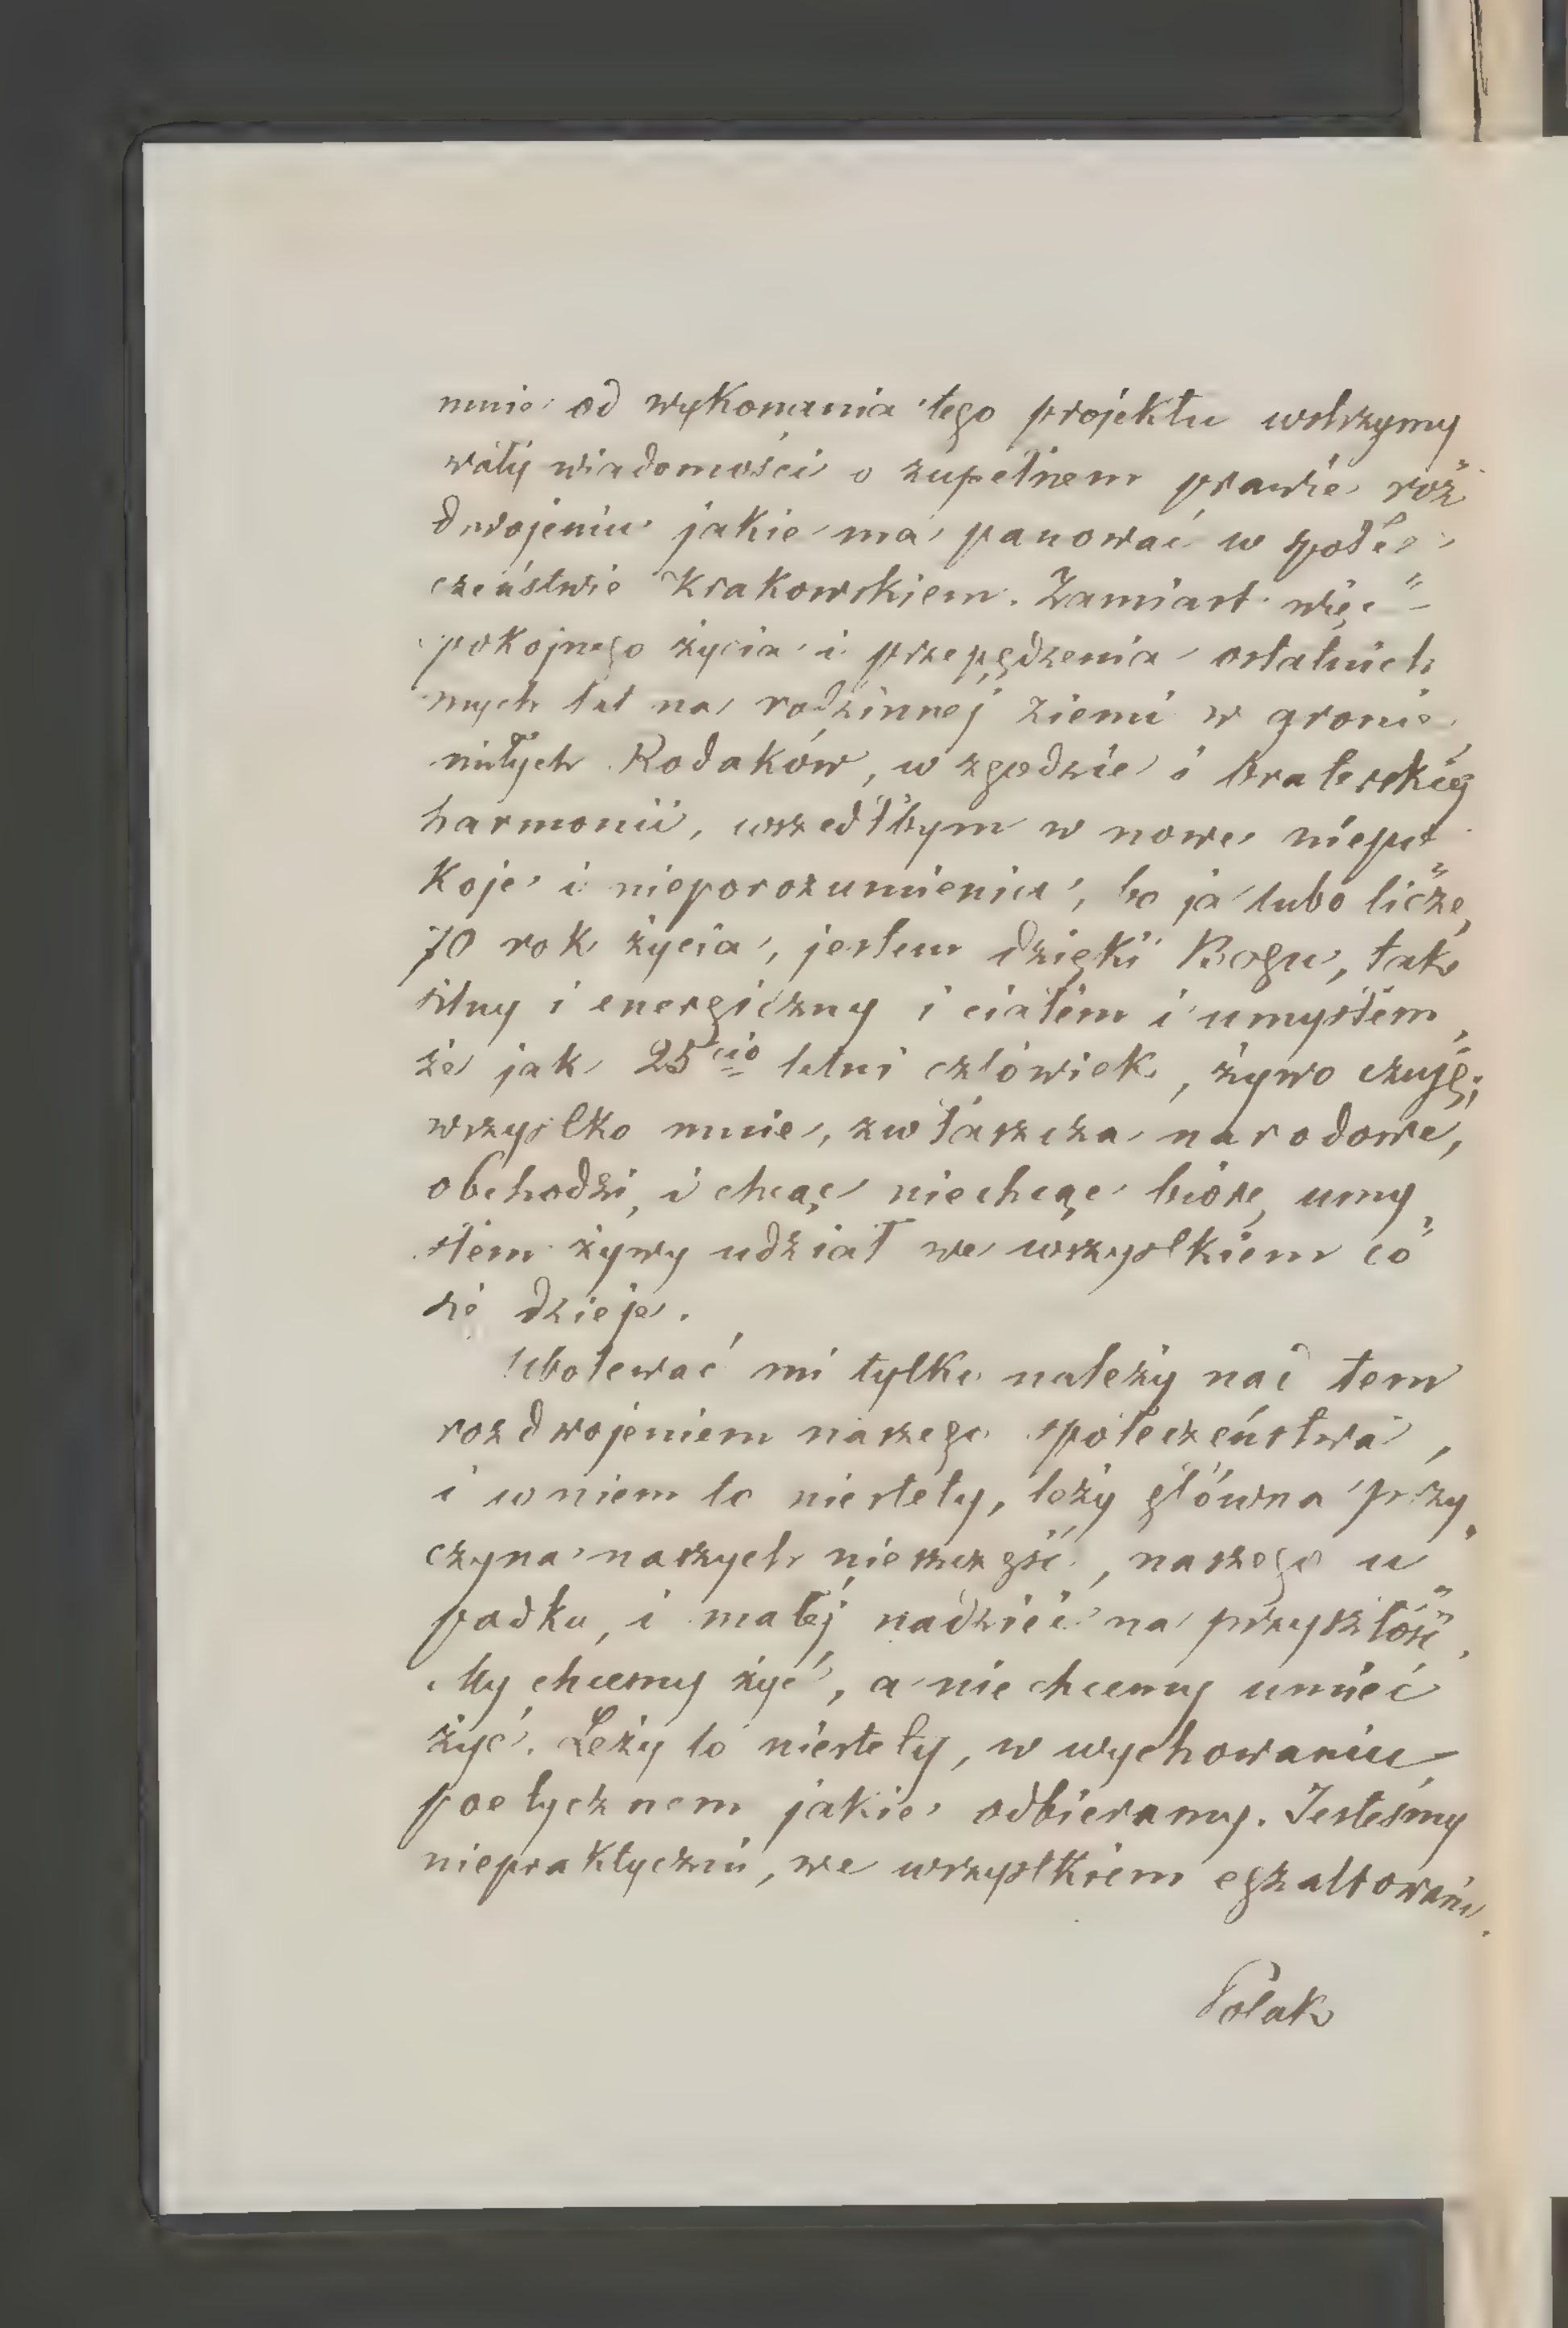 mnie od wykonania tego projektu wstrzymy
wały wiadomości o zupełnem prawie roz„
dwojeniu jakie ma panować w społe„
czeństwie Krakowskiem. Zamiast więc
spokojnego życia i przepędzenia ostatnich
mych lat na rodzinnej ziemi w gronie
miłych Rodaków, w zgodzie i braterskiéj
harmonii, wszedłbym w nowe niepo„
koje i nieporozumienia, bo ja lubo liczę
70 rok życia, jestem dzięki Bogu, tak
silny i energiczny i ciałem i umysłem,
że jak 25cio letni człowiek, żywo czuję;
wszystko mnie, zwłaszcza narodowe,
obchodzi, i chcąc niechcąc biorę umy„
słem żywy udział we wszystkiem co
się dzieje.
Ubolewać mi tylko należy nad tem
rozdwojeniem naszego społeczeństwa,
i w niem to niestety, leży główna przy„
czyna naszych nieszczęść, naszego u„
padku, i małéj nadziei na przyszłość.
My chcemy żyć, a nie chcemy umieć
żyć. Leży to niestety, w wychowaniu
poetycznem jakie odbieramy. Jesteśmy
niepraktyczni, we wszystkiem egzaltowani.
Polak